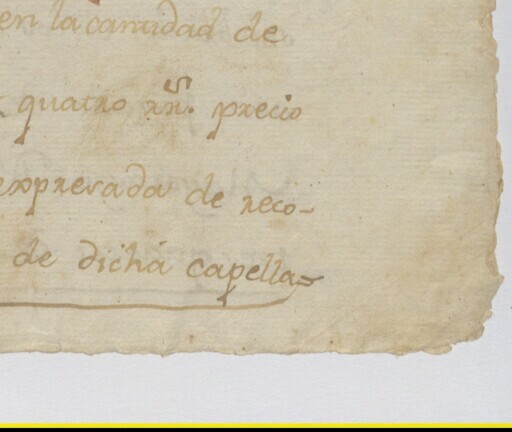 en la cantidad de
quatro rrs. precio
expresada de reco-
de dicha capella=